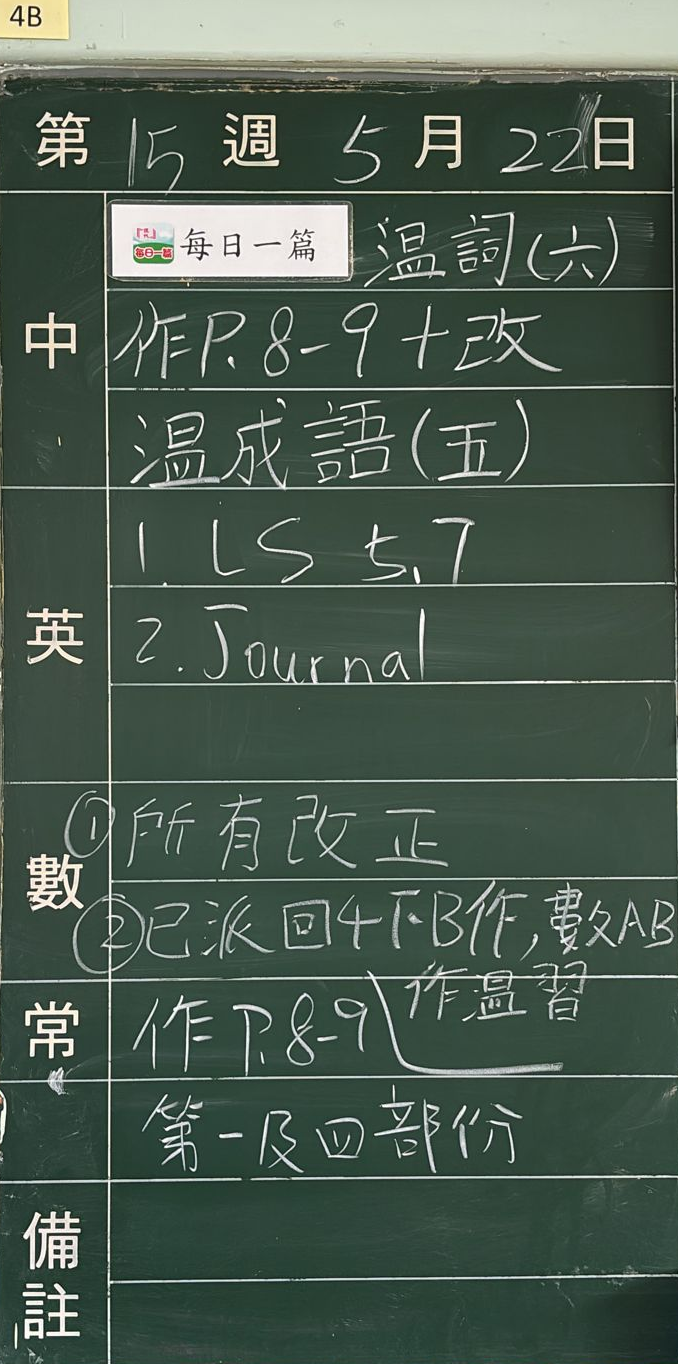 4B
第 15 週 5 月 22 日
中
每日一篇 每日一篇 温詞(六)
作P.8-9+改
温成語(五)
英
1. LS 5.7
2. Journal
數
①所有改正
②已派回4下B作,數AB
作温習
常
作P.8-9
第一及四部份
備註